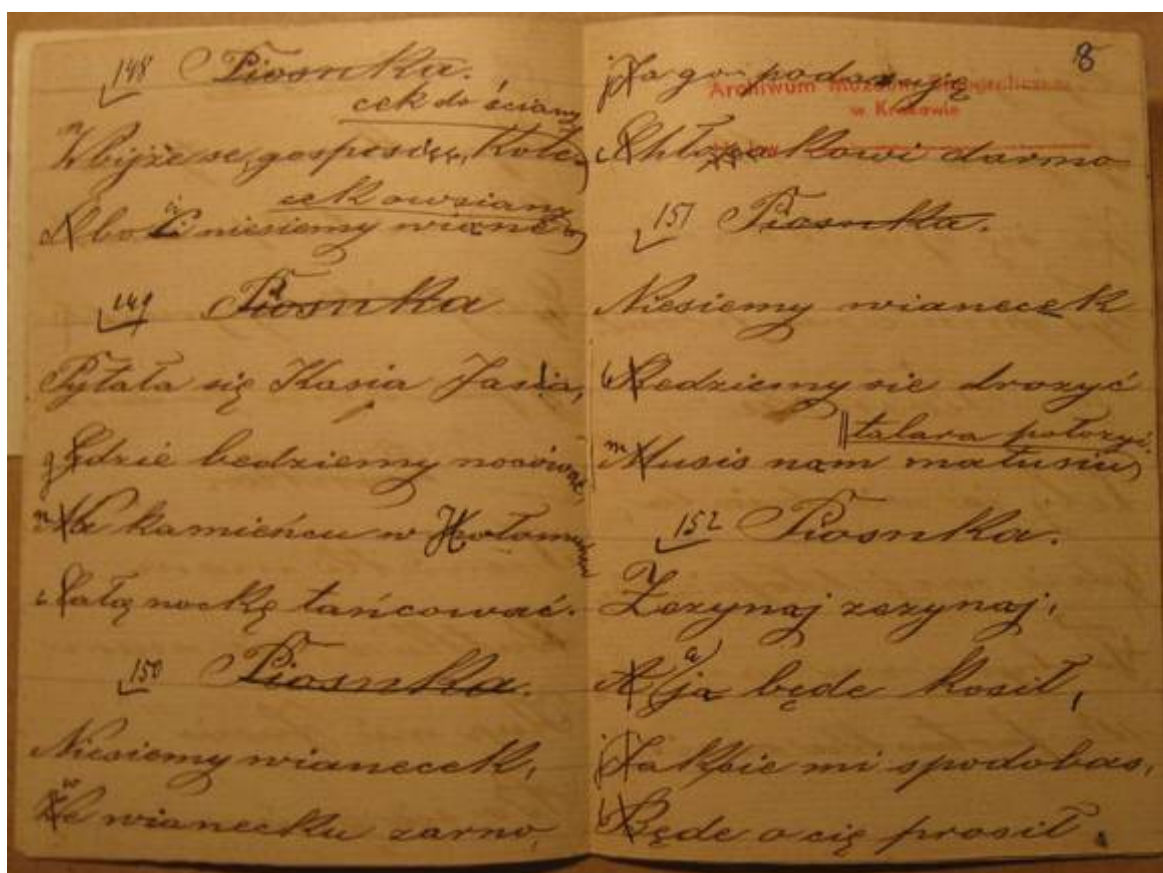 148 Piosnka.
cek do ściany
Wbijze se, gosposiu, kołe-
cek owsiany
Abo ci niesiemy wiane-
149 Piosnka
Pytała się Kasia Jasia,
Gdzie bedziemy nocować,
Na kamieńcu w
Całą nockę tańcować.
150 Piosnka.
Niesiemy wianecek,
We wianecku zarno,
8
Ja go podaruję
Archiwum Muzeum Etnograficznego
w Krakowie
Chłopakowi darmo
151 Piosnka.
Niesiemy wianecek
Bedziemy sie drozyć
talara położyć
Musis nam matusiu
152 Piosnka.
Zezynaj zezynaj,
A ja będe kosił,
Jak sie mi spodobas,
Będe o cię prosił.